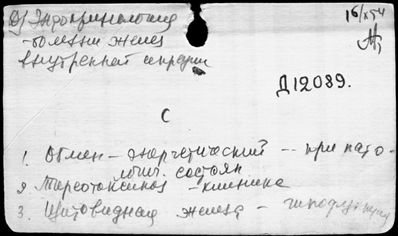 16/X 54
Д) Эндокринология
- болезни желез
внутренней секреции
Д12089.
С
1. Обмен - энергетический -- при пато-
логич. состоян
2. Тиреотоксикоз - клиника
3. Щитовидная железа - гипофункция